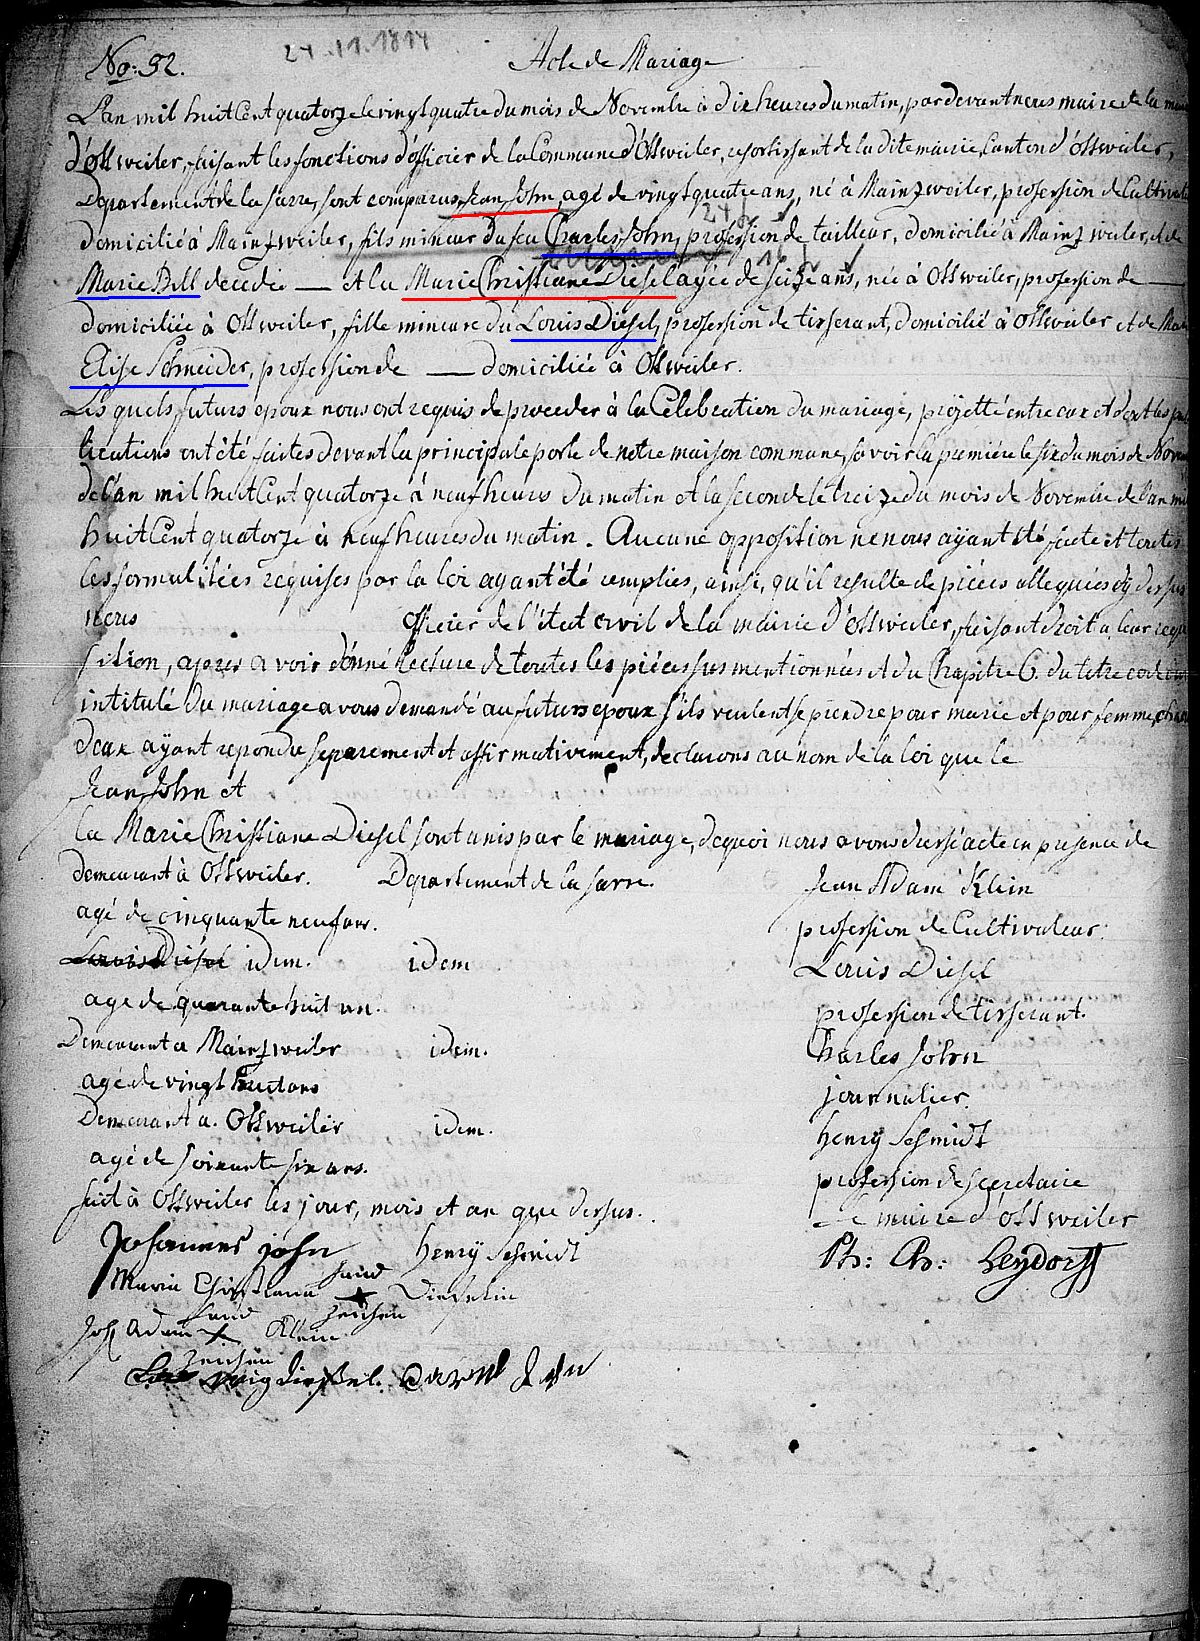 24.11.1814
No: 52. Acte de Mariage
L'an mil huit Cent quatorze le vingt quatre du mois de Novembre à dix heures du matin, par devant nous maire de la
d'Ottweiler, faisant les fonctions d'officier de la Commune d'Ottweiler, resortissant de la dite mairie, Canton d'ottweiler,
Departement de la Sarre, sont comparus Jean John, agé de vingt quatre ans, né à Mainzweiler, profession de Cultivat
24
domicilié à Mainzweiler, fils mineur du feu Charles John, profession de tailleur, domicilié à Mainzweiler, et de
16
Marie Bill decedée — et la Marie Christiane Diesel agée de seize ans, née à Ottweiler, profession de —
domiciliée à Ottweiler, fille mineure du Louis Diesel, profession de tisserant, domicilié à Ottweiler et de
Elise Schneider, profession de — domiciliée à Ottweiler.
Les quels futurs epoux nous ont requis de proceder à la Celebration du mariage, projetté entre eux et dont les
lications ont été faites devant la principale porte de notre maison commune, savoir la première le six du mois de Nov
de l'an mil huit Cent quatorze à neuf heures du matin et la seconde le treize du mois de Novembre de l'an mil
huit Cent quatorze à neuf heures du matin. Aucune opposition ne nous ayant été faite et toutes
les formalitées requises par la loi ayant été remplies, ainsi, qu'il resulte de pièces alleguées cy dessus
nous officier de l'état civil de la mairie d'Ottweiler, faisant droit a leur requi
sition, apres avoir donné lecture de toutes les pièces sus mentionnées et du Chapitre 6. du titre
intitulé du mariage avons demandé au futurs epoux s'ils veulent se prendre pour marie et pour femme,
d'eux ayant repondu separement et affirmativement, declarons au nom de la loi que le
Jean John et
la Marie Christiane Diesel sont unis par le mariage, de quoi nous avons dressé acte en presence de
demeurant à Ottweiler. Departement de la Sarre. Jean Adam Klein
agé de cinquante neuf ans. profession de Cultivateur.
Louis Diesel idem. idem Louis Diesel
agé de quarante huit an. profession de tisserant.
Demeurant a Mainzweiler idem. Charles John
agé de vingt huit ans journalier
Demeurant a. Ottweiler idem. Henry Schmidt
agé de soixante six ans. profession de secretaire
fait à Ottweiler les jour, mois et an que dessus. maire d'Ottweiler
Johannes John Henry Schmidt Ph: Ch: Heydorff
Maria Christiana hand Dieselin
zeichen
Joh Adam hand Klein
zeichen